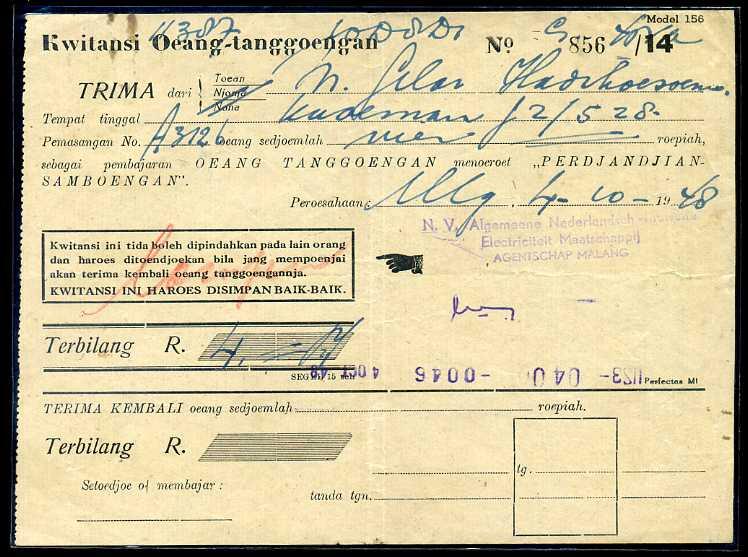 Model 156
Kwitansi Oeang-tanggoengan No 856 /14
TRIMA dari Toean
Njonja
Nona
Tempat tinggal
Pemasangan No. A3126 oeang sedjoemlah vier roepiah,
sebagai pembajaran OEANG TANGGOENGAN menoeroet „PERDJANDJIAN-
SAMBOENGAN".
Peroesahaan Mlg, 4-10-1948
N. V. Algemeene Nederlandsch
Electriciteit Maatschappij
AGENTSCHAP MALANG
Kwitansi ini tida boleh dipindahkan pada lain orang
dan haroes ditoendjoekan bila jang mempoenjai
akan terima kembali oeang tanggoengannja.
KWITANSI INI HAROES DISIMPAN BAIK-BAIK.
Terbilang R. 4.-
4 OCT 48 -0046 040
Perfectas MI
TERIMA KEMBALI oeang sedjoemlah roepiah.
Terbilang R.
tg.
Setoedjoe of membajar :
tanda tgn.